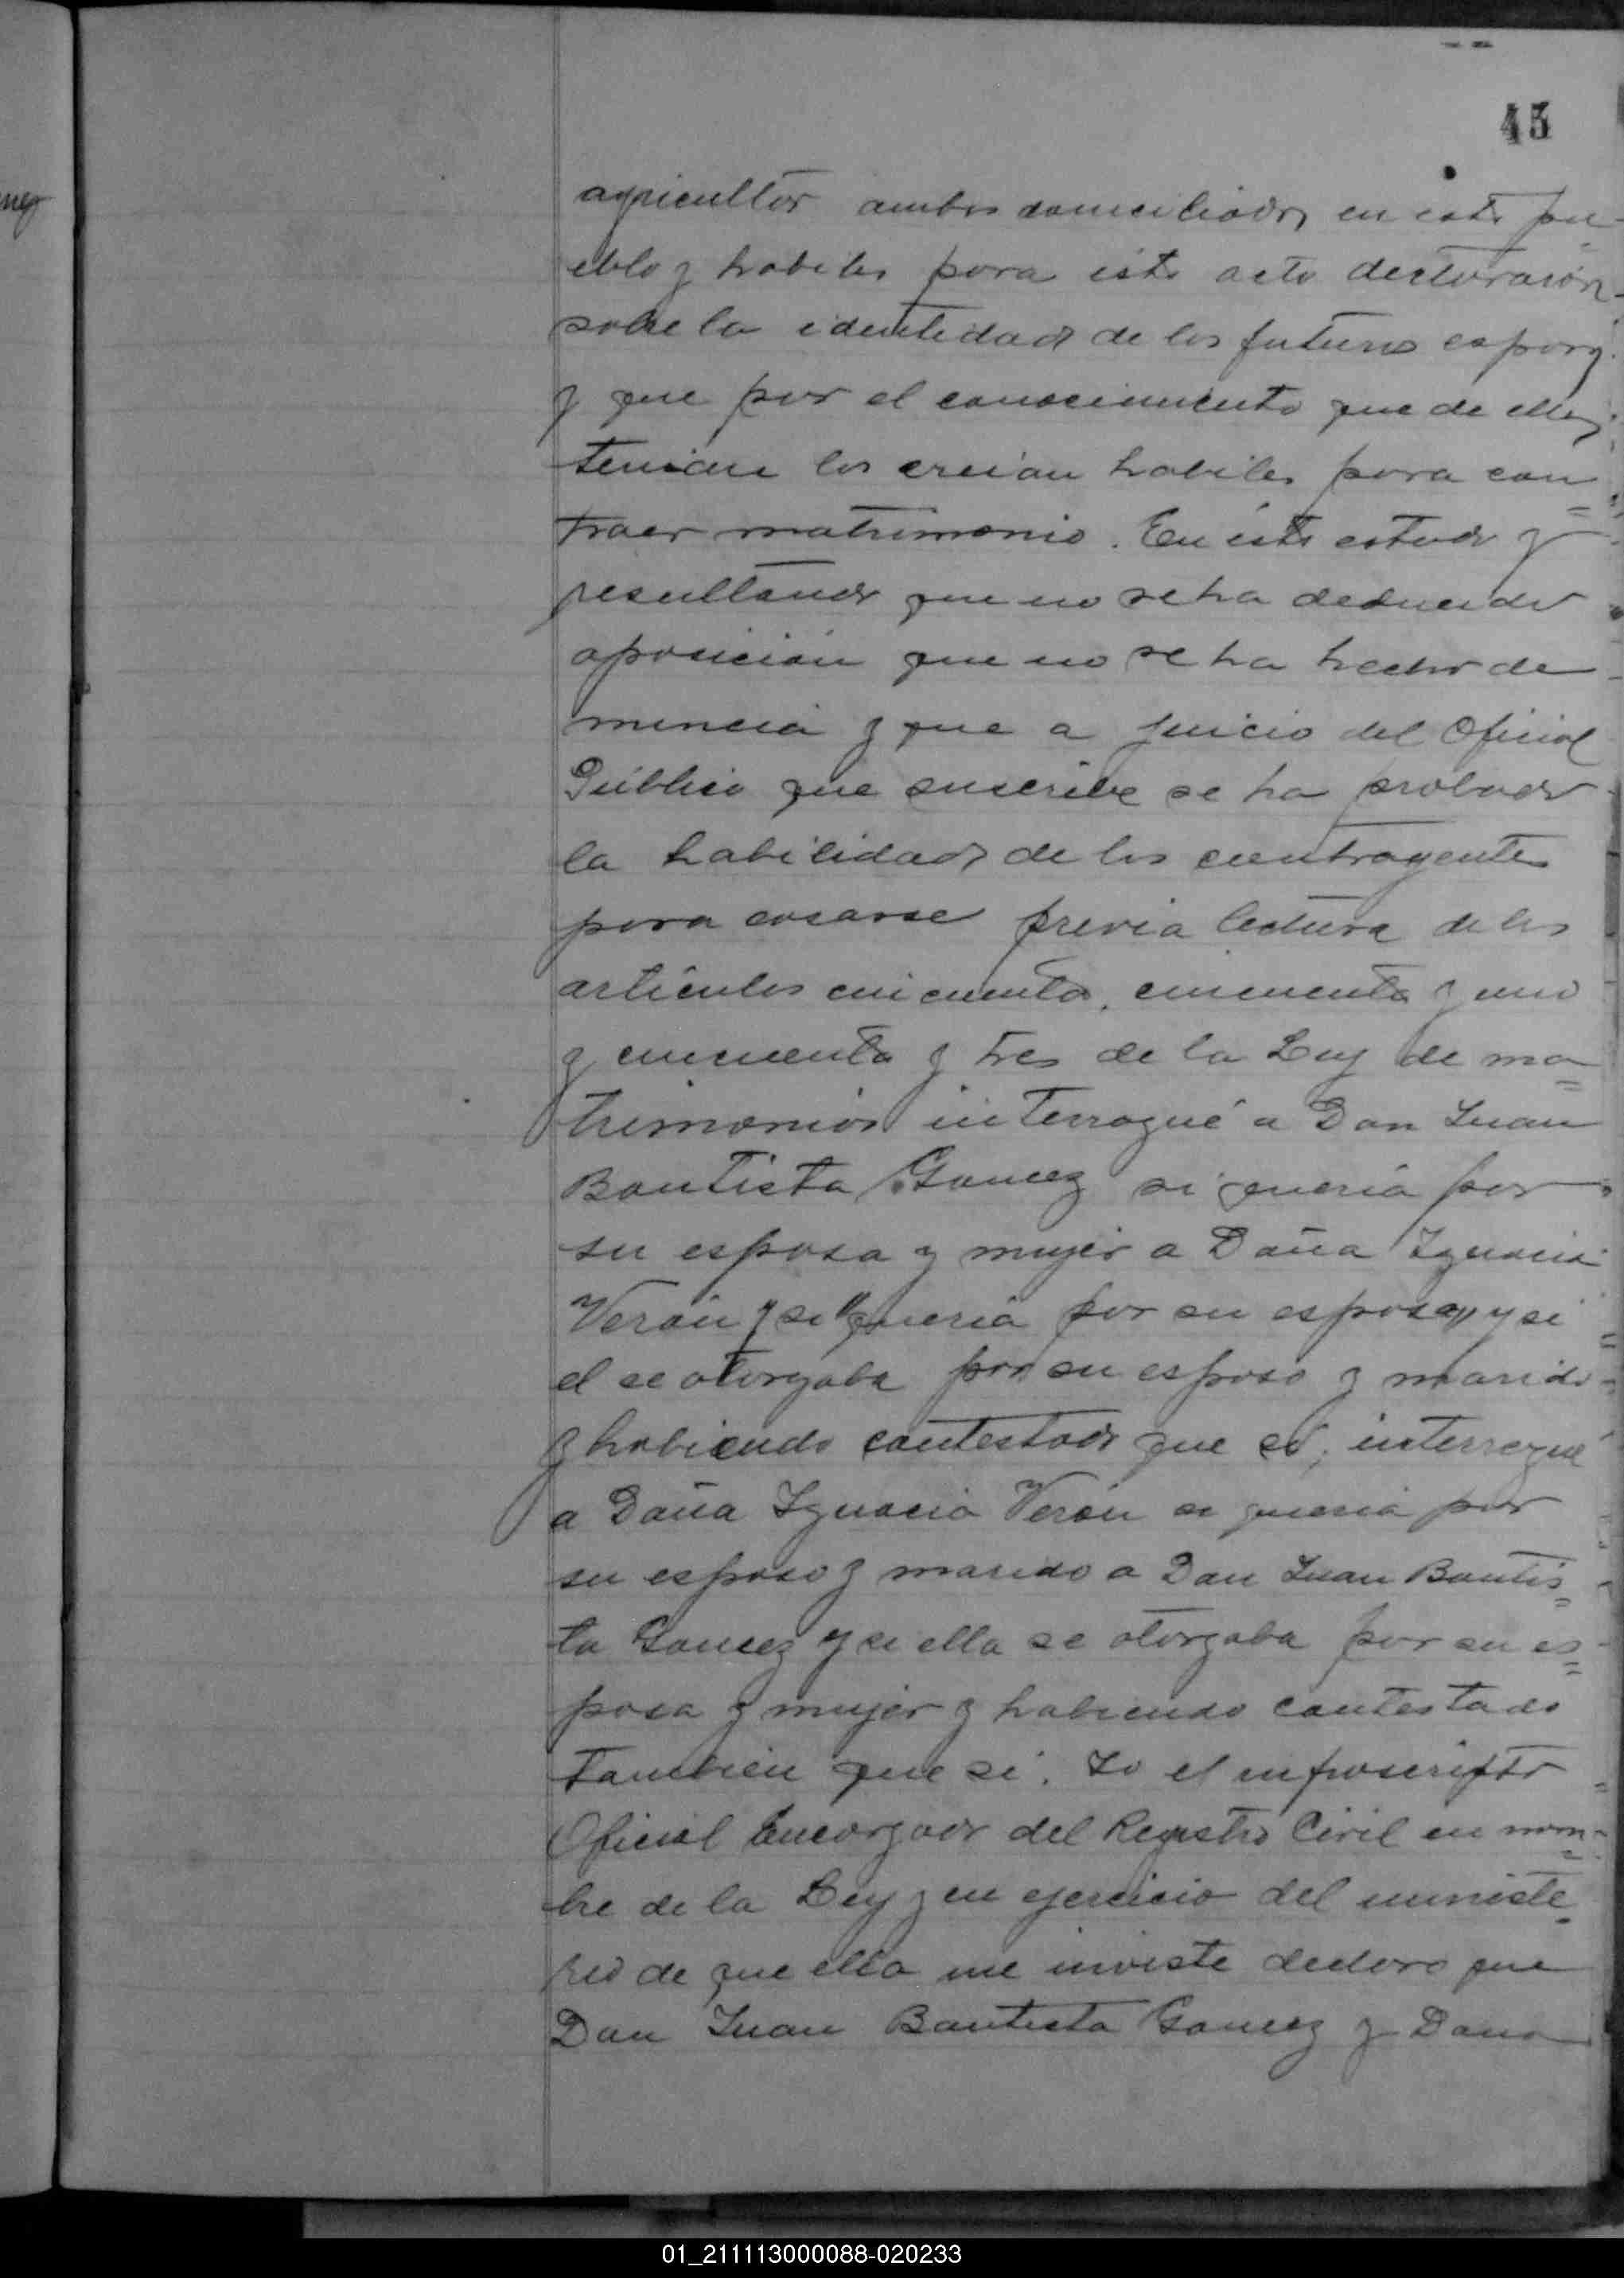 45
agricultor ambos domiciliados en este pu
eblo y habiles para éste acto declararon
sobre la identidad de los futuros esposos
y que por el conocimiento que de ellos
tenian los creian habiles para con=
traer matrimonio. En éste estado y
resultando que no se ha deducido
oposicion que no se ha hecho de
nuncia y que a juicio del Oficial
Público que suscribe se ha probado
la habilidad de los contrayentes
para casarse previa lectura de los
artículos cincuenta, cincuenta y uno
y cincuenta y tres de la Ley de ma=
trimonios interrogué a Don Juan
Bautista Gomez si queria por
su esposa y mujer a Doña Ignacia
Verón y si "queria por su esposa" y si
el se otorgaba por su esposo y marido
y habiendo contestado que sí, interrogué
a Doña Ignacia Verón si queria por
su esposo y marido a Don Juan Bautis=
ta Gomez y si ella se otorgaba por su es=
posa y mujer y habiendo contestado
tambien que si. Yo el infrascripto
Oficial Encargado del Registro Civil en nom=
bre de la Ley y en ejercicio del ministe=
rio de que ella me inviste declaro que
Don Juan Bautista Gomez y Doña
01_211113000088-020233